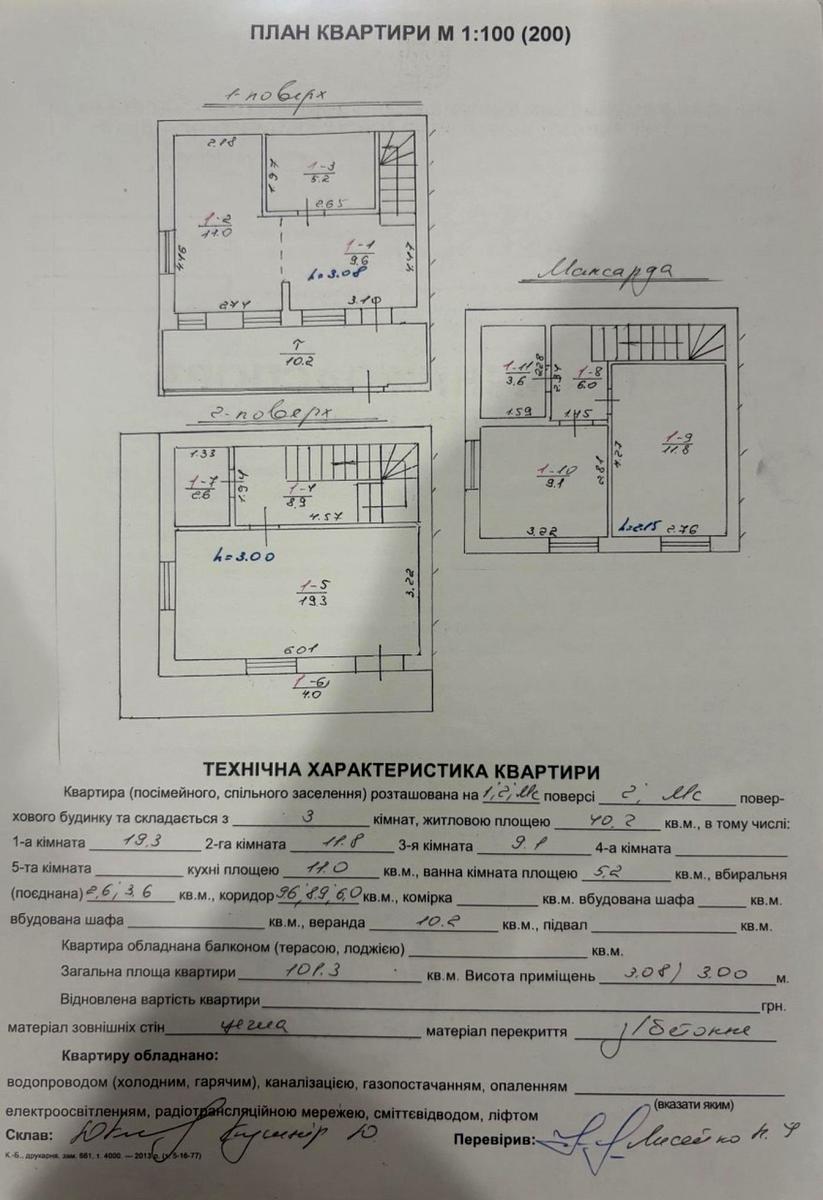 ПЛАН КВАРТИРИ М 1:100 (200)
1-поверх
2.18
1-3
5.2
1.97
2.65
1-2
11.0
4.46
1-1
9.6
h=3.08
4.47
2.74
3.10
Т
10.2
Мансарда
1-11
3.6
2.28
1.59
1-8
6.0
2.94
1.45
1-9
11.8
4.27
1-10
9.1
2.81
3.22
h=2.15
2.76
2-поверх
1.33
1-7
2.6
1.94
1-4
8.9
4.57
h=3.00
1-5
19.3
3.22
6.01
1-6
4.0
ТЕХНІЧНА ХАРАКТЕРИСТИКА КВАРТИРИ
Квартира (посімейного, спільного заселення) розташована на 1, 2, Мс поверсі 2, Мс повер-
хового будинку та складається з 3 кімнат, житловою площею 40,2 кв.м., в тому числі:
1-а кімната 19,3 2-га кімната 11.8 3-я кімната 9.1 4-а кімната
5-та кімната кухні площею 11.0 кв.м., ванна кімната площею 5,2 кв.м., вбиральня
(поєднана) 2,6; 3.6 кв.м., коридор 9.6, 8.9, 6,0 кв.м., комірка кв.м. вбудована шафа кв.м.
вбудована шафа кв.м., веранда 10.2 кв.м., підвал кв.м.
Квартира обладнана балконом (терасою, лоджією) кв.м.
Загальна площа квартири 101.3 кв.м. Висота приміщень 3.08; 3.00 м.
Відновлена вартість квартири грн.
матеріал зовнішніх стін цегла матеріал перекриття з/бетонне
Квартиру обладнано:
водопроводом (холодним, гарячим), каналізацією, газопостачанням, опаленням
електроосвітленням, радіотрансляційною мережею, сміттєвідводом, ліфтом (вказати яким)
Склав: Кушнір Ю. Перевірив: Лисейко Н. Ф
К.-Б., друкарня, зам. 661, т. 4000. — 2013 р. (т. 5-16-77)